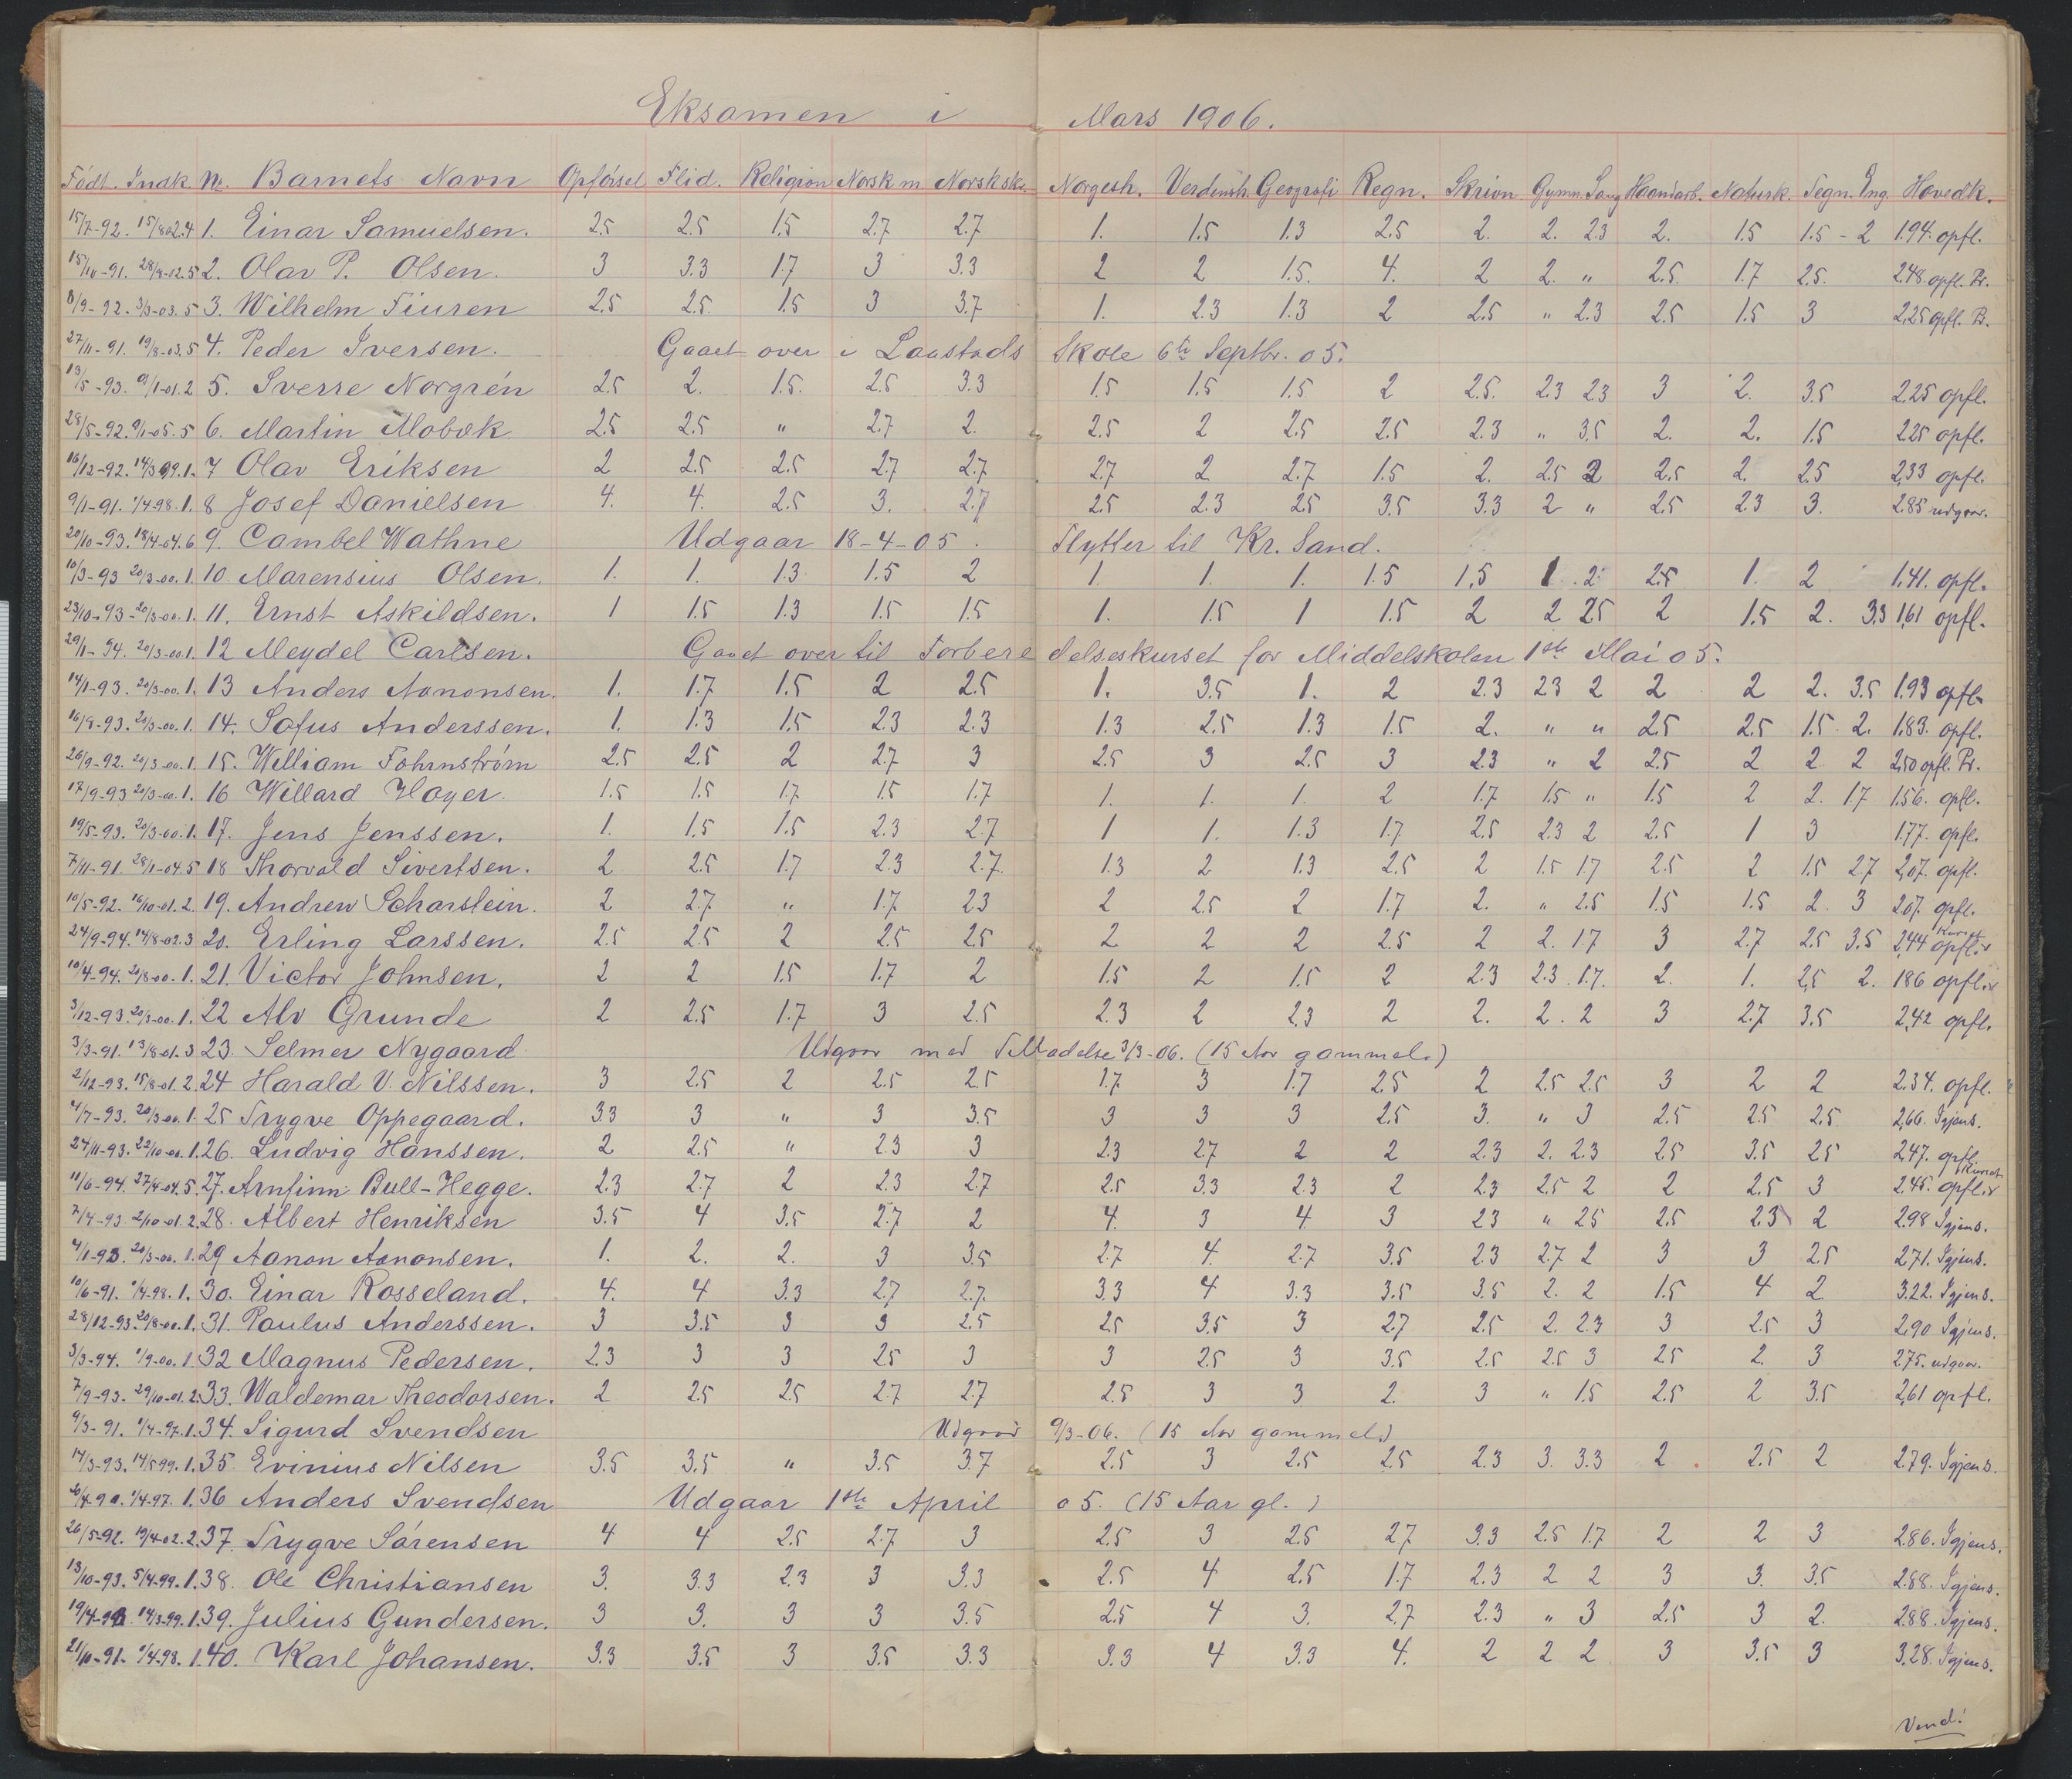 Eksamen i Mars 1906.
Født. Indk. No. Barnets Navn Opførsel Flid. Religion Norsk m. Norsk sk. Norgesh. Verdensh. Geografi Regn. Skrivn Gymn. Sang Haandarb. Naturk. Tegn. Eng. Hovedk.
15/7-92. 15/8 02.4 1. Einar Samuelsen. 2.5 2.5 1.5 2.7 2.7 1. 1.5 1.3 2.5 2. 2. 2.3 2. 1.5 1.5 - 2 1.94. opfl.
15/10-91. 28/8-02.5 2. Olav P. Olsen. 3 3.3 1.7 3 3.3 2 2 1.5. 4. 2 2. " 2.5. 1.7 2.5. 2.48. opfl. Pr.
8/9-92. 3/3-03.5 3. Wilhelm Fiuren 2.5 2.5. 1.5 3 3.7 1. 2.3 1.3 2 2.5 " 2.3 2.5 1.5 3 2,25 opfl. Pr.
27/11-91. 19/8-03.5 4. Peder Iversen. Gaaet over i Laastads Skole 6te Septbr. 05.
13/5-93. 9/1-01.2 5. Sverre Norgrén 2.5 2. 1.5. 2.5 3.3 1.5 1.5 1.5 2 2.5. 2.3 2.3 3 2. 3.5 2.25 opfl.
28/5-92. 9/1-05.5 6. Martin Mobæk 2.5 2.5 " 2.7 2. 2.5 2 2.5 2.5 2.3 " 3.5 2. 2. 1.5 2.25 opfl.
16/12-92. 14/3 99.1. 7 Olav Eriksen 2 2.5 2.5 2.7 2.7 2.7 2 2.7 1.5 2. 2.5 2 2.5 2. 2.5 2,33 opfl.
9/1-91. 1/4-98.1. 8 Josef Danielsen 4. 4. 2.5 3. 2.7 2.5 2.3 2.5 3.5 3.3 2 " 2.5 2.3 3. 2.85 udgaar.
20/10-93. 18/4-04.6 9. Cambel Wathne Udgaar 18-4-05. Flytter til Kr. Sand.
10/3-93 20/3-00.1. 10. Marensius Olsen. 1. 1. 1.3 1.5 2 1. 1. 1. 1.5 1,5 1. 2. 2.5 1. 2 1.41. opfl.
23/10-93- 20/3-00.1. 11. Ernst Askildsen. 1 1.5 1.3 1.5 1.5 1. 1.5 1 1.5 2 2 2.5 2 1.5 2. 3.3 1,61 opfl.
29/1-94. 20/3-00.1. 12 Meydel Carlsen. Gaaet over til Forberedelseskurset for Middelskolen 1ste Mai 05.
14/1-93. 20/3-00.1. 13 Anders Aanonsen. 1. 1.7 1.5 2 2.5 1. 3.5 1. 2 2.3 2.3 2 2 2 2. 3.5 1.93 opfl.
16/8-93. 20/3-00.1. 14. Sofus Anderssen. 1. 1.3 1.5 2.3 2.3 1.3 2.5 1.3 1.5 2. " " 2.5 2.5 1.5. 2. 1.83. opfl.
26/9-92. 20/3-00.1. 15. William Fohrnstrøm 2.5 2.5 2 2.7 3 2.5 3 2.5 3 2.3 " 2 2.5 2 2 2 2,50 opfl. Pr.
17/9-93 20/3-00.1. 16 Willard Hoyer. 1.5 1.5 1.7 1.5 1.7 1. 1. 1. 2 1.7 1.5 " 1.5 2 2. 1.7 1.56. opfl.
19/5-93. 20/3-00.1. 17. Jens Jenssen. 1. 1.5 1.5 2.3 2.7 1 1. 1.3 1.7 2.5 2.3 2 2.5 1 3 1.77. opfl.
7/11-91. 28/1-04.5 18 Thorvald Sivertsen. 2 2.5 1.7 2.3 2.7. 1.3 2 1.3 2.5 2 1.5 1.7 2.5 2 1.5 2.7 2,07. opfl.
10/5-92. 16/10-01.2. 19. Andrew Scharstein. 2 2.7 " 1.7 2.3 2 2.5 2 1.7 2. " 2.5 1.5 1.5 2. 3 2.07. opfl.
24/9-94. 14/8-02.3 20. Erling Larssen. 2.5 2.5 2 2.5 2.5 2 2 2 2.5 2 2. 1.7 3 2.7 2.5 3.5 2,44 opfl.
10/4-94. 20/8-00.1. 21. Victor Johnsen. 2 2 1.5 1.7 2 1.5 2 1.5 2 2.3 2.3. 1.7. 2. 1. 2,5 2. 1.86 opfl.
3/12-93. 20/3-00.1. 22 Alv Grunde 2 2.5 1.7 3 2.5 2.3 2 2.3 2 2. 2. 2 3 2.7 3.5 2,42 opfl.
3/3-91. 13/8-01.3 23. Selmer Nygaard. Udgaar med Tilladelse 3/3-06. (15 Aar gammel.)
2/12-93. 15/8-01.2. 24 Harald V. Nilssen. 3 2.5 2 2.5 2.5 1.7 3 1.7 2.5 2 2.5 2.5 3 2 2 2.34. opfl.
4/7-93. 20/3-00.1. 25 Trygve Oppegaard. 3.3 3 " 3 3.5 3 3 3 2.5 3. " 3 2.5 2.5 2.5 2,66. Igjens.
24/11-93. 22/10-00.1. 26. Ludvig Hanssen. 2 2.5 " 2.3 3 2.3 2.7 2 2 2.3 2. 2.3 2.5 3.5 2.5 2.47. opfl.
11/6-94. 27/4-04.5. 27. Arnfinn Bull-Hegge. 2.3 2.7 2 2.3 2.7 2.5 3.3 2.3 2 2.3 2.5 2 2 2.5 3 2.45. opfl.
7/4-93. 2/10-01.2. 28. Albert Henriksen 3.5 4 3.5 2.7 2 4. 3 4. 3 2.3 " 2.5 2.5 2.3 2 2.98 Igjens.
4/1-93. 20/3-00.1. 29 Aanon Aanonsen. 1. 2. 2. 3 3.5 2.7 4. 2.7 3.5 2.3 2.7 2 3 3 2.5 2,71. Igjens.
10/6-91. 1/4-98.1. 30. Einar Rosseland. 4. 4 3.3 2.7 2.7. 3.3 4 3.3 3.5 3.5 2. 2 1.5 4 2 3.22. Igjens.
28/12-93. 20/8-00.1. 31. Paulus Anderssen. 3 3.5 3 3 2.5 2.5 3.5 3 2.7 2.5 2. 2.3 3 2.5 3 2.90 Igjens.
3/3-94. 1/9-00.1. 32 Magnus Pedersen. 2.3 3 3 2.5 3 3 2.5 3 3.5 2.5 2.5 3 2.5 2. 3 2.75. udgaar.
7/9-93. 29/10-01.2. 33. Waldemar Theodorsen. 2 2.5 2.5 2.7 2.7 2.5 3 3 2. 3 " 1.5 2.5 2 3.5 2,61 opfl.
9/3-91. 1/4-97.1. 34. Sigurd Svendsen Udgaar 9/3-06. (15 Aar gammel.)
14/3-93. 14/5 99.1. 35. Evinius Nilsen 3.5 3.5 " 3.5 3.7 2.5 3 2.5 2.5 2.3 3. 3.3 2 2.5 2 2.79. Igjens.
1/4-97. 1. 36 Anders Svendsen Udgaar 1ste April 05. (15 Aar gl.)
26/5-92. 19/4-02.2. 37. Trygve Sørensen 4 4 2.5 2.7 3 2.5 3 2.5 2.7 3.3 2.5 1.7 2 2 3 2.86. Igjens.
13/10-93. 5/4-99.1. 38. Ole Christiansen 3. 3.3 2.3 3 3.3 2.5 4 2.5 1.7 2.3 2 2 3 3. 3.5 2.88. Igjens.
14/3-99.1. 39. Julius Gundersen. 3 3. 3 3 3.5 2.5 4 3. 2.7 2.3 " 3 2.5 3 2. 2.88. Igjens.
21/10-91. 1/4-98. 1. 40. Karl Johansen. 3.3 3.5 3 3.5 3.3 3.3 4 3.3 4. 2 2 2 3 3.5 3 3.28. Igjens.
Vend!